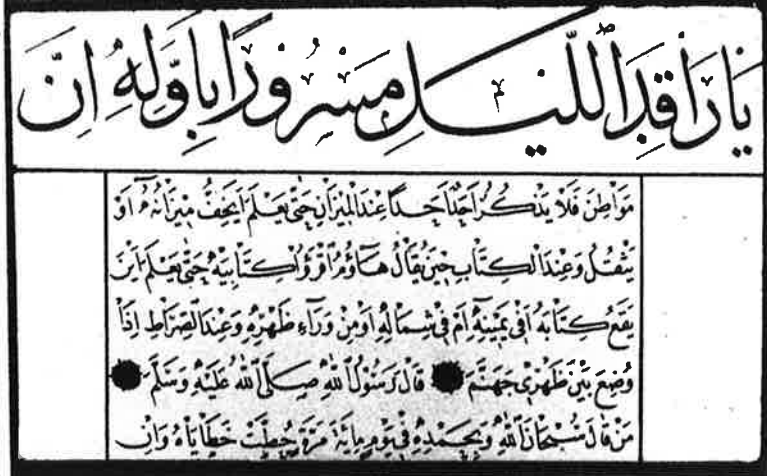 يَا رَاقِدَ اللَّيْلِ مَسْرُورًا بِاَوَّلِهِ اِنَّ
مَوَاطِنَ فَلَا يَذْكُرُ اَحَدٌ اَحَدًا عِنْدَ الْمِيزَانِ حَتّٰى يَعْلَمَ اَيَخِفُّ مِيزَانُهُ اَوْ
يَثْقُلُ وَعِنْدَ الْكِتَابِ حِينَ يُقَالُ هَاؤُمُ اقْرَؤُا كِتَابِيَهْ حَتّٰى يَعْلَمَ اَيْنَ
يَقَعُ كِتَابُهُ اَفِي يَمِينِهِ اَمْ فِي شِمَالِهِ اَوْ مِنْ وَرَاءِ ظَهْرِهِ وَعِنْدَ الصِّرَاطِ اِذَا
وُضِعَ بَيْنَ ظَهْرَيْ جَهَنَّمَ قَالَ رَسُولُ اللهِ صَلَّى اللهُ عَلَيْهِ وَسَلَّمَ
مَنْ قَالَ سُبْحَانَ اللهِ وَبِحَمْدِهِ فِي يَوْمٍ مِائَةَ مَرَّةٍ حُطَّتْ خَطَايَاهُ وَاِنْ